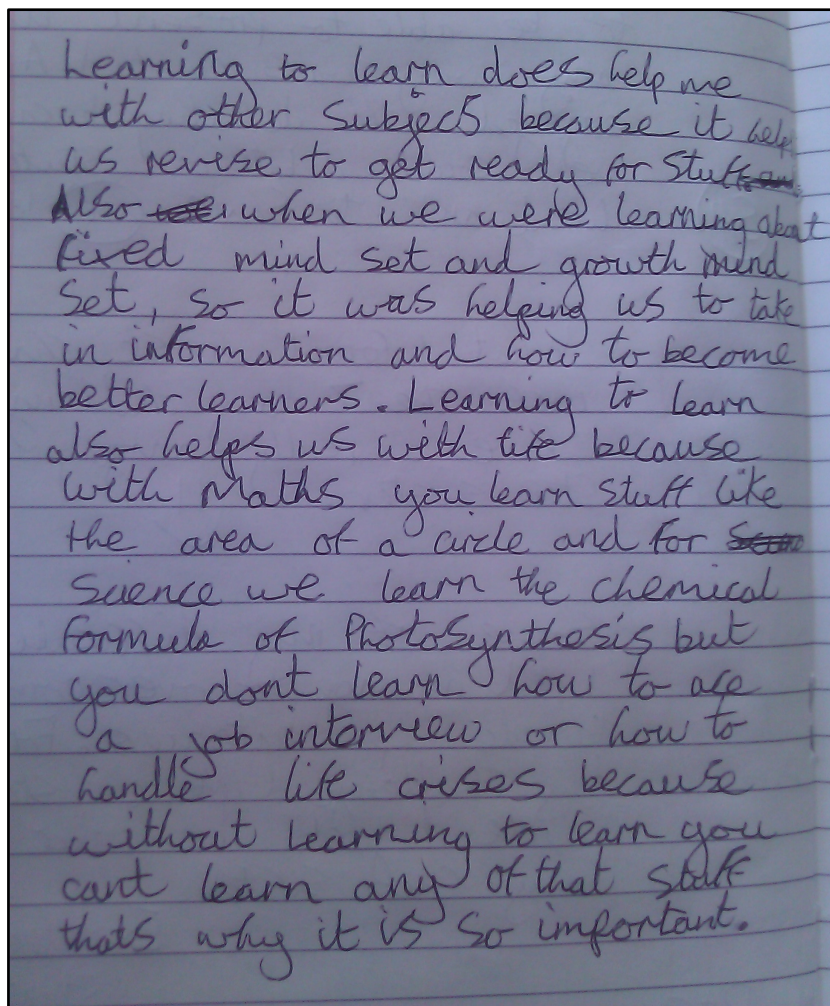 Learning to learn does help me
with other Subjects because it help
us revise to get ready for Stuff
Also when we were learning about
fixed mind set and growth mind
set, so it was helping us to take
in information and how to become
better learners. Learning to learn
also helps us with life because
with Maths you learn stuff like
the area of a circle and for
Science we learn the chemical
formula of Photosynthesis but
you dont learn how to ace
a job interview or how to
handle life crises because
without learning to learn you
cant learn any of that stuff
thats why it is so important.